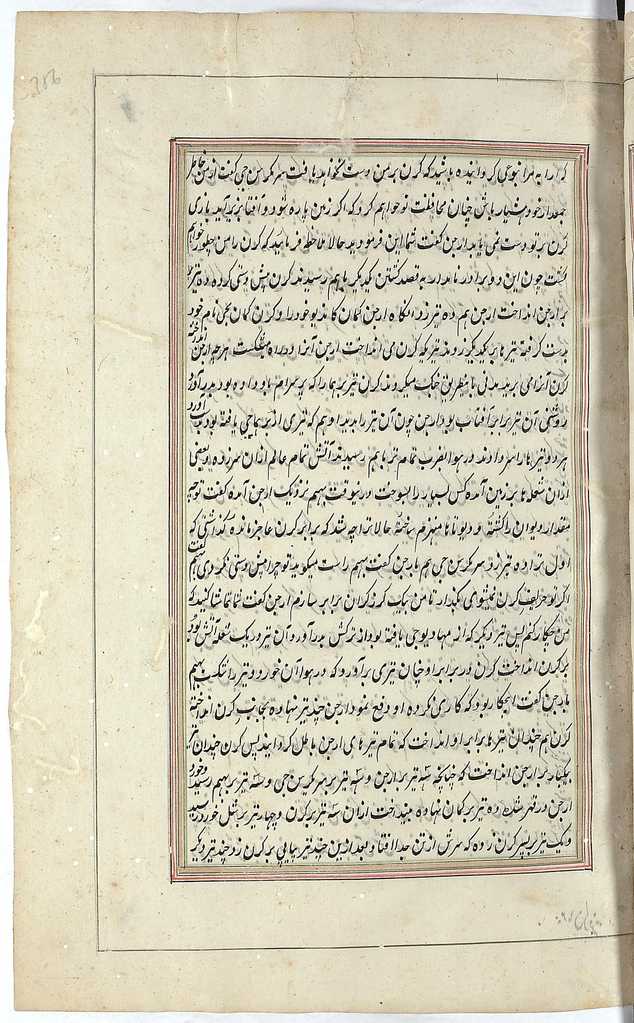 که او را به مرا نبوعی گردانیده باشید که کرن بر من دست نخواهد یافت سر کرسن جی گفت ارجن خاطر
جمعدار خود هشیار باش چنان محافظت تو خواهم کرد که اگر زمین پاره شود و آفتاب بزیر آید باری
کرن بر تو دست نمی یابد ارجن گفت شما این فرمودید حالا ملاحظه فرمایید که کرن را من چطور خواهم
کشت چون این دو برادر نامدار به قصد کشتن یکدیگر باهم رسیدند کرن پیش دستی کرده ده تیر
بر ارجن انداخت ارجن هم ده تیر زد آنگاه ارجن کمان کاندیو خود را و کرن کمان بجی نام خود
بدست گرفته تیرها بر یکدیگر زدند تیر که کرن می انداخت ارجن آنرا در راه میشکست هر چه ارجن انداخته
کرن آنرا می برید مدتی باینطریق جنگ میکردند کرن تیر برهما را که پرسرام باو داده بود بدر آورد
روشنی آن تیر برابر آفتاب بود ارجن چون آن تیر را بدید او هم که تیری از برهماجی یافته بود بر آورد
هر دو تیرها را سر دادند در هوا بضرب تمام تیر باهم رسیدند آتش تمام عالم ازان سر زده بعضی
ازان شعلها بر زمین آمده کس بسیار را بسوخت درینوقت بهیم نزدیک ارجن آمده گفت توجه
مقدار دیوان را کشته و دیوتاها منهزم ساخته حالا ترا چه شد که برابر کرن عاجز مانده گذاشتی که
اول ترا ده تیر زد سر کرسن جی هم بارجن گفت بهیم راست میگوید تو چرا پیش دستی نکردی بهیم گفت
اگر تو حریف کرن نمیشوی بگذار تا من بیک گرز گران برابر سازم ارجن گفت شما تماشا کنید که
من چکار کنم پس تیر دیگر که از مهادیوجی یافته بود از ترکش بدر آورد و آن تیر در یک شعله آتش بود
بر کرن انداخت کرن در برابر او چنان تیری بر آورد که در هوا آن خورد و تیر را بشکست بهیم
بارجن گفت اینجا بود که کاری نکرده او دفع نمود ارجن چند تیر نهاده بجانب کرن انداخته
کرن هم چندان تیرها برابر او انداخت که تمام تیرهای ارجن باطل گردانید پس کرن چندان تیر
یکبار بر ارجن انداخت که چنانچه سه تیر بر ارجن و سه تیر بر سر کرسن جی و سه تیر بر بهیم رسید و خورد
ارجن در قهر شده ده تیر بر کمان نهاده بینداخت ازان سه تیر بر کرن و چهار تیر بر شل خورد رسید
و یک تیر بر پسر کرن زده که سرش از تن جدا افتاد بعد ازین چند تیر پیاپی بر کرن زد چند تیر دیگر